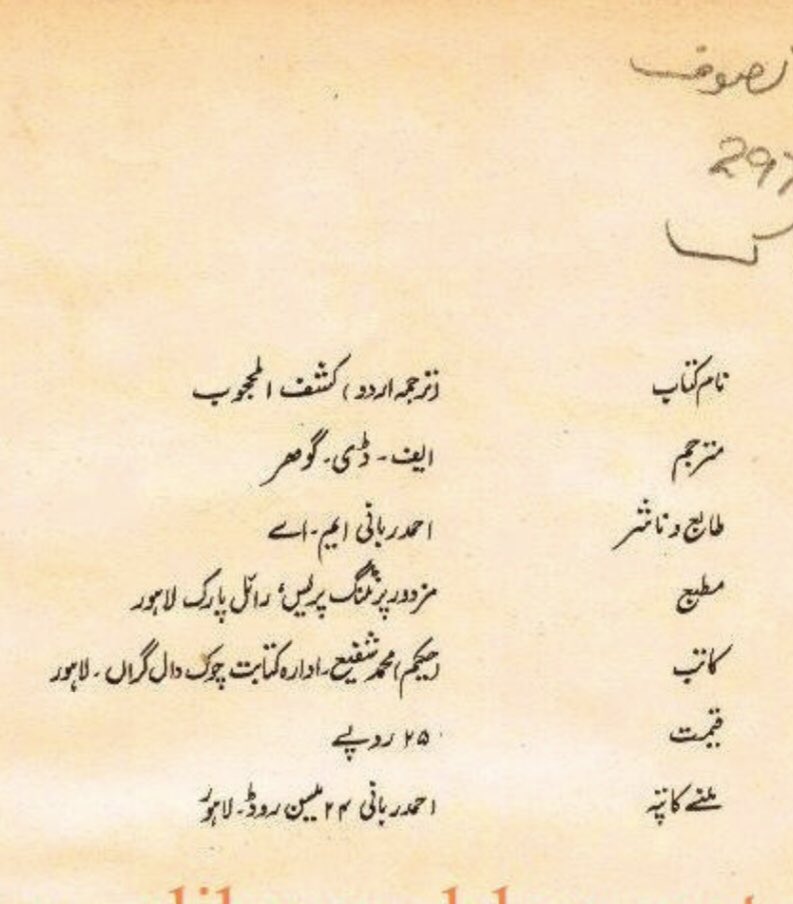 تصوف
297
ک
نام کتاب (ترجمہ اردو) کشف المحجوب
مترجم ایف - ڈی - گوھر
طابع و ناشر احمد ربانی ایم - اے
مطبع مزدور پرنٹنگ پریس، رائل پارک لاہور
کاتب (حکیم) محمد شفیع - ادارہ کتابت چوک دال گراں - لاہور
قیمت ۲۵ روپے
ملنے کا پتہ احمد ربانی ۲۴ میسن روڈ - لاہور